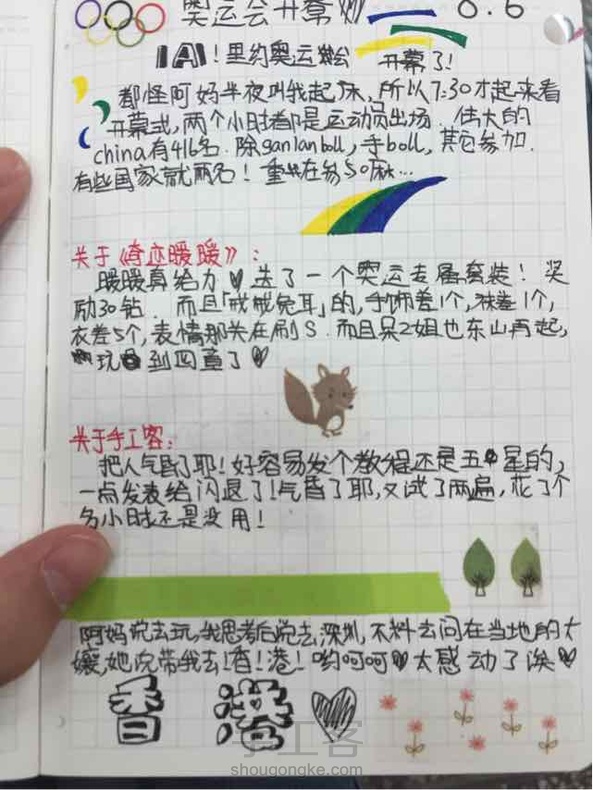 奥运会开幕 8.6
里约奥运会 开幕了!
都怪阿妈半夜叫我起床,所以7:30才起来看
开幕式,两个小时都是运动员出场.伟大的
china有416名.除ganlanball,手boll,其它参加.
有些国家就两名!重共在多50麻…
关于《奇迹暖暖》:
暖暖真给力♥送了一个奥运专属套装!奖
励30钻.而且「戒戒兔耳」的,手饰差1个,袜差1个,
衣差5个,表情那关在刷S.而且呆2姐也东山再起,
玩到四章了♡
关于手工客:
把人气昏了耶!好容易发个教程还是五星的,
一点发表给闪退了!气昏了耶,又试了两遍,花了个
多小时还是没用!
阿妈说去玩,我思考后说去深圳,不料去问在当地的大
嬢,她说带我去!香!港!哟呵呵♥太感动了诶♥
香港
手工客
shougongke.com